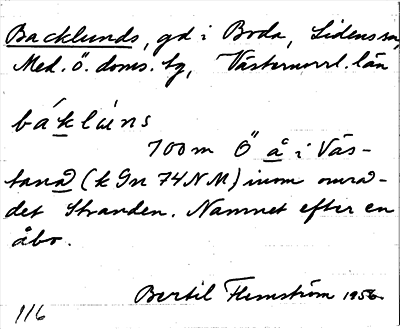 Backlunds, gd i Boda, Lidens sn,
Med. Ö. doms. tg, Västernorrl. län
báklúns
700 m Ö å i Väs-
tanå (k Gn 74 NM) inom områ-
det Stranden. Namnet efter en
åbo.
Bertil Flemström 1956
116